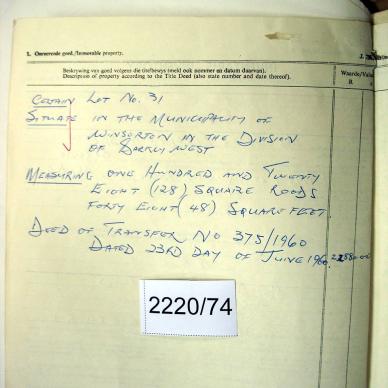 1. Onroerende goed./Immovable property.
Beskrywing van goed volgens die titelbewys (meld ook nommer en datum daarvan).
Description of property according to the Title Deed (also state number and date thereof).
Waarde/Value
R
CERTAIN LOT NO. 31
SITUATE IN THE MUNICIPALITY OF
WINSORTON IN THE DIVISION
OF BARKLY WEST
MEASURING ONE HUNDRED AND TWENTY
EIGHT (128) SQUARE ROODS
FORTY EIGHT (48) SQUARE FEET.
DEED OF TRANSFER NO 375/1960
DATED 23RD DAY OF JUNE 1960
2220/74